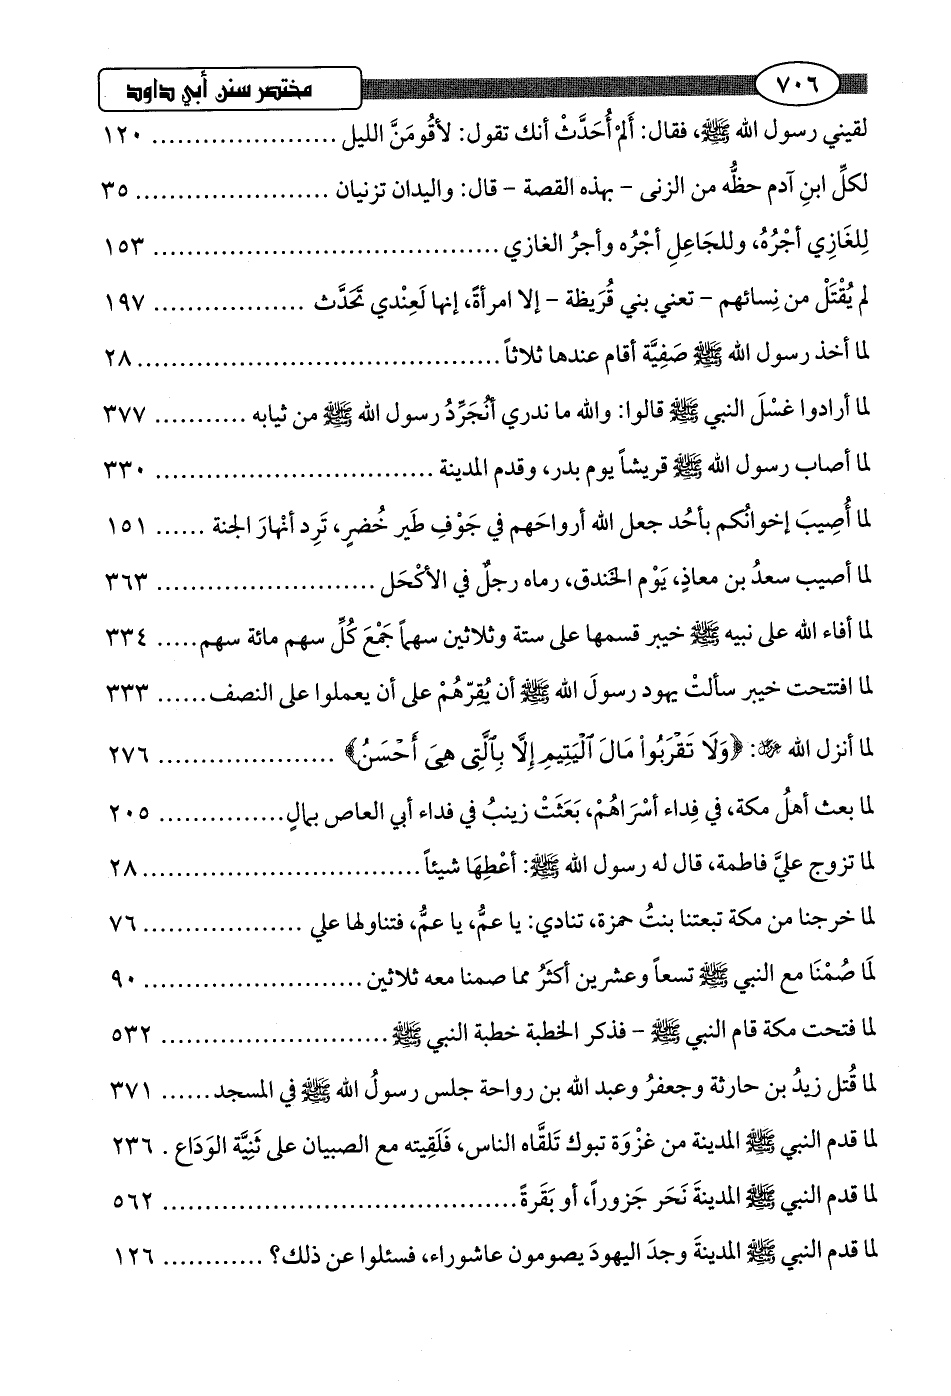 ٧٠٦ مختصر سنن أبي داود
لقيني رسول الله ﷺ، فقال: أَلمْ أُحَدَّثْ أنك تقول: لأقُومَنَّ الليل ...................... ١٢٠
لكلِّ ابنِ آدم حظُّه من الزنى - بهذه القصة - قال: واليدان تزنيان ....................... ٣٥
لِلغَازِي أجْرُهُ، وللجَاعِلِ أجْرُه وأجرُ الغازي ......................................... ١٥٣
لم يُقْتَلْ من نِسائهم - تعني بني قُرَيظة - إلا امرأةً، إنها لَعِندي تَحَدَّث .................. ١٩٧
لما أخذ رسول الله ﷺ صَفِيَّة أقام عندها ثلاثاً ........................................... ٢٨
لما أرادوا غسْلَ النبي ﷺ قالوا: والله ما ندري أنُجَرِّدُ رسول الله ﷺ من ثيابه ........... ٣٧٧
لما أصاب رسول الله ﷺ قريشاً يوم بدر، وقدم المدينة ................................. ٣٣٠
لما أُصِيبَ إخوانُكم بأحُد جعل الله أرواحَهم في جَوْفِ طَير خُضرٍ، تَرِد أنْهارَ الجنة ...... ١٥١
لما أصيب سعدُ بن معاذٍ، يَوْم الخندق، رماه رجلٌ في الأكْحَل .......................... ٣٦٣
لما أفاء الله على نبيه ﷺ خيبر قسمها على ستة وثلاثين سهماً جَمْعَ كُلِّ سهم مائة سهم ..... ٣٣٤
لما افتتحت خيبر سألتْ يهود رسولَ الله ﷺ أن يُقِرّهُمْ على أن يعملوا على النصف ...... ٣٣٣
لما أنزل الله ﷿: ﴿وَلَا تَقْرَبُوا۟ مَالَ ٱلْيَتِيمِ إِلَّا بِٱلَّتِى هِىَ أَحْسَنُ﴾ ..................... ٢٧٦
لما بعث أهلُ مكة، في فِداء أسْرَاهُمْ، بَعَثَتْ زينبُ في فداء أبي العاص بمالٍ ............... ٢٠٥
لما تزوج عليَّ فاطمة، قال له رسول الله ﷺ: أعْطِهَا شيئاً ................................ ٢٨
لما خرجنا من مكة تبعتنا بنتُ حمزة، تنادي: يا عمُّ، يا عمُّ، فتناولها علي ................... ٧٦
لَمَا صُمْنَا مع النبي ﷺ تسعاً وعشرين أكثَرُ مما صمنا معه ثلاثين .......................... ٩٠
لما فتحت مكة قام النبي ﷺ - فذكر الخطبة خطبة النبي ﷺ .......................... ٥٣٢
لما قُتل زيدُ بن حارثة وجعفرُ وعبد الله بن رواحة جلس رسولُ الله ﷺ في المسجد ...... ٣٧١
لما قدم النبي ﷺ المدينة من غزْوَة تبوك تَلقَّاه الناس، فَلَقِيته مع الصبيان على ثَنِيَّة الوَدَاع . ٢٣٦
لما قدم النبي ﷺ المدينةَ نَحَر جَزوراً، أو بَقَرةً .......................................... ٥٦٢
لما قدم النبي ﷺ المدينةَ وجدَ اليهودَ يصومون عاشوراء، فسئلوا عن ذلك؟ ............ ١٢٦